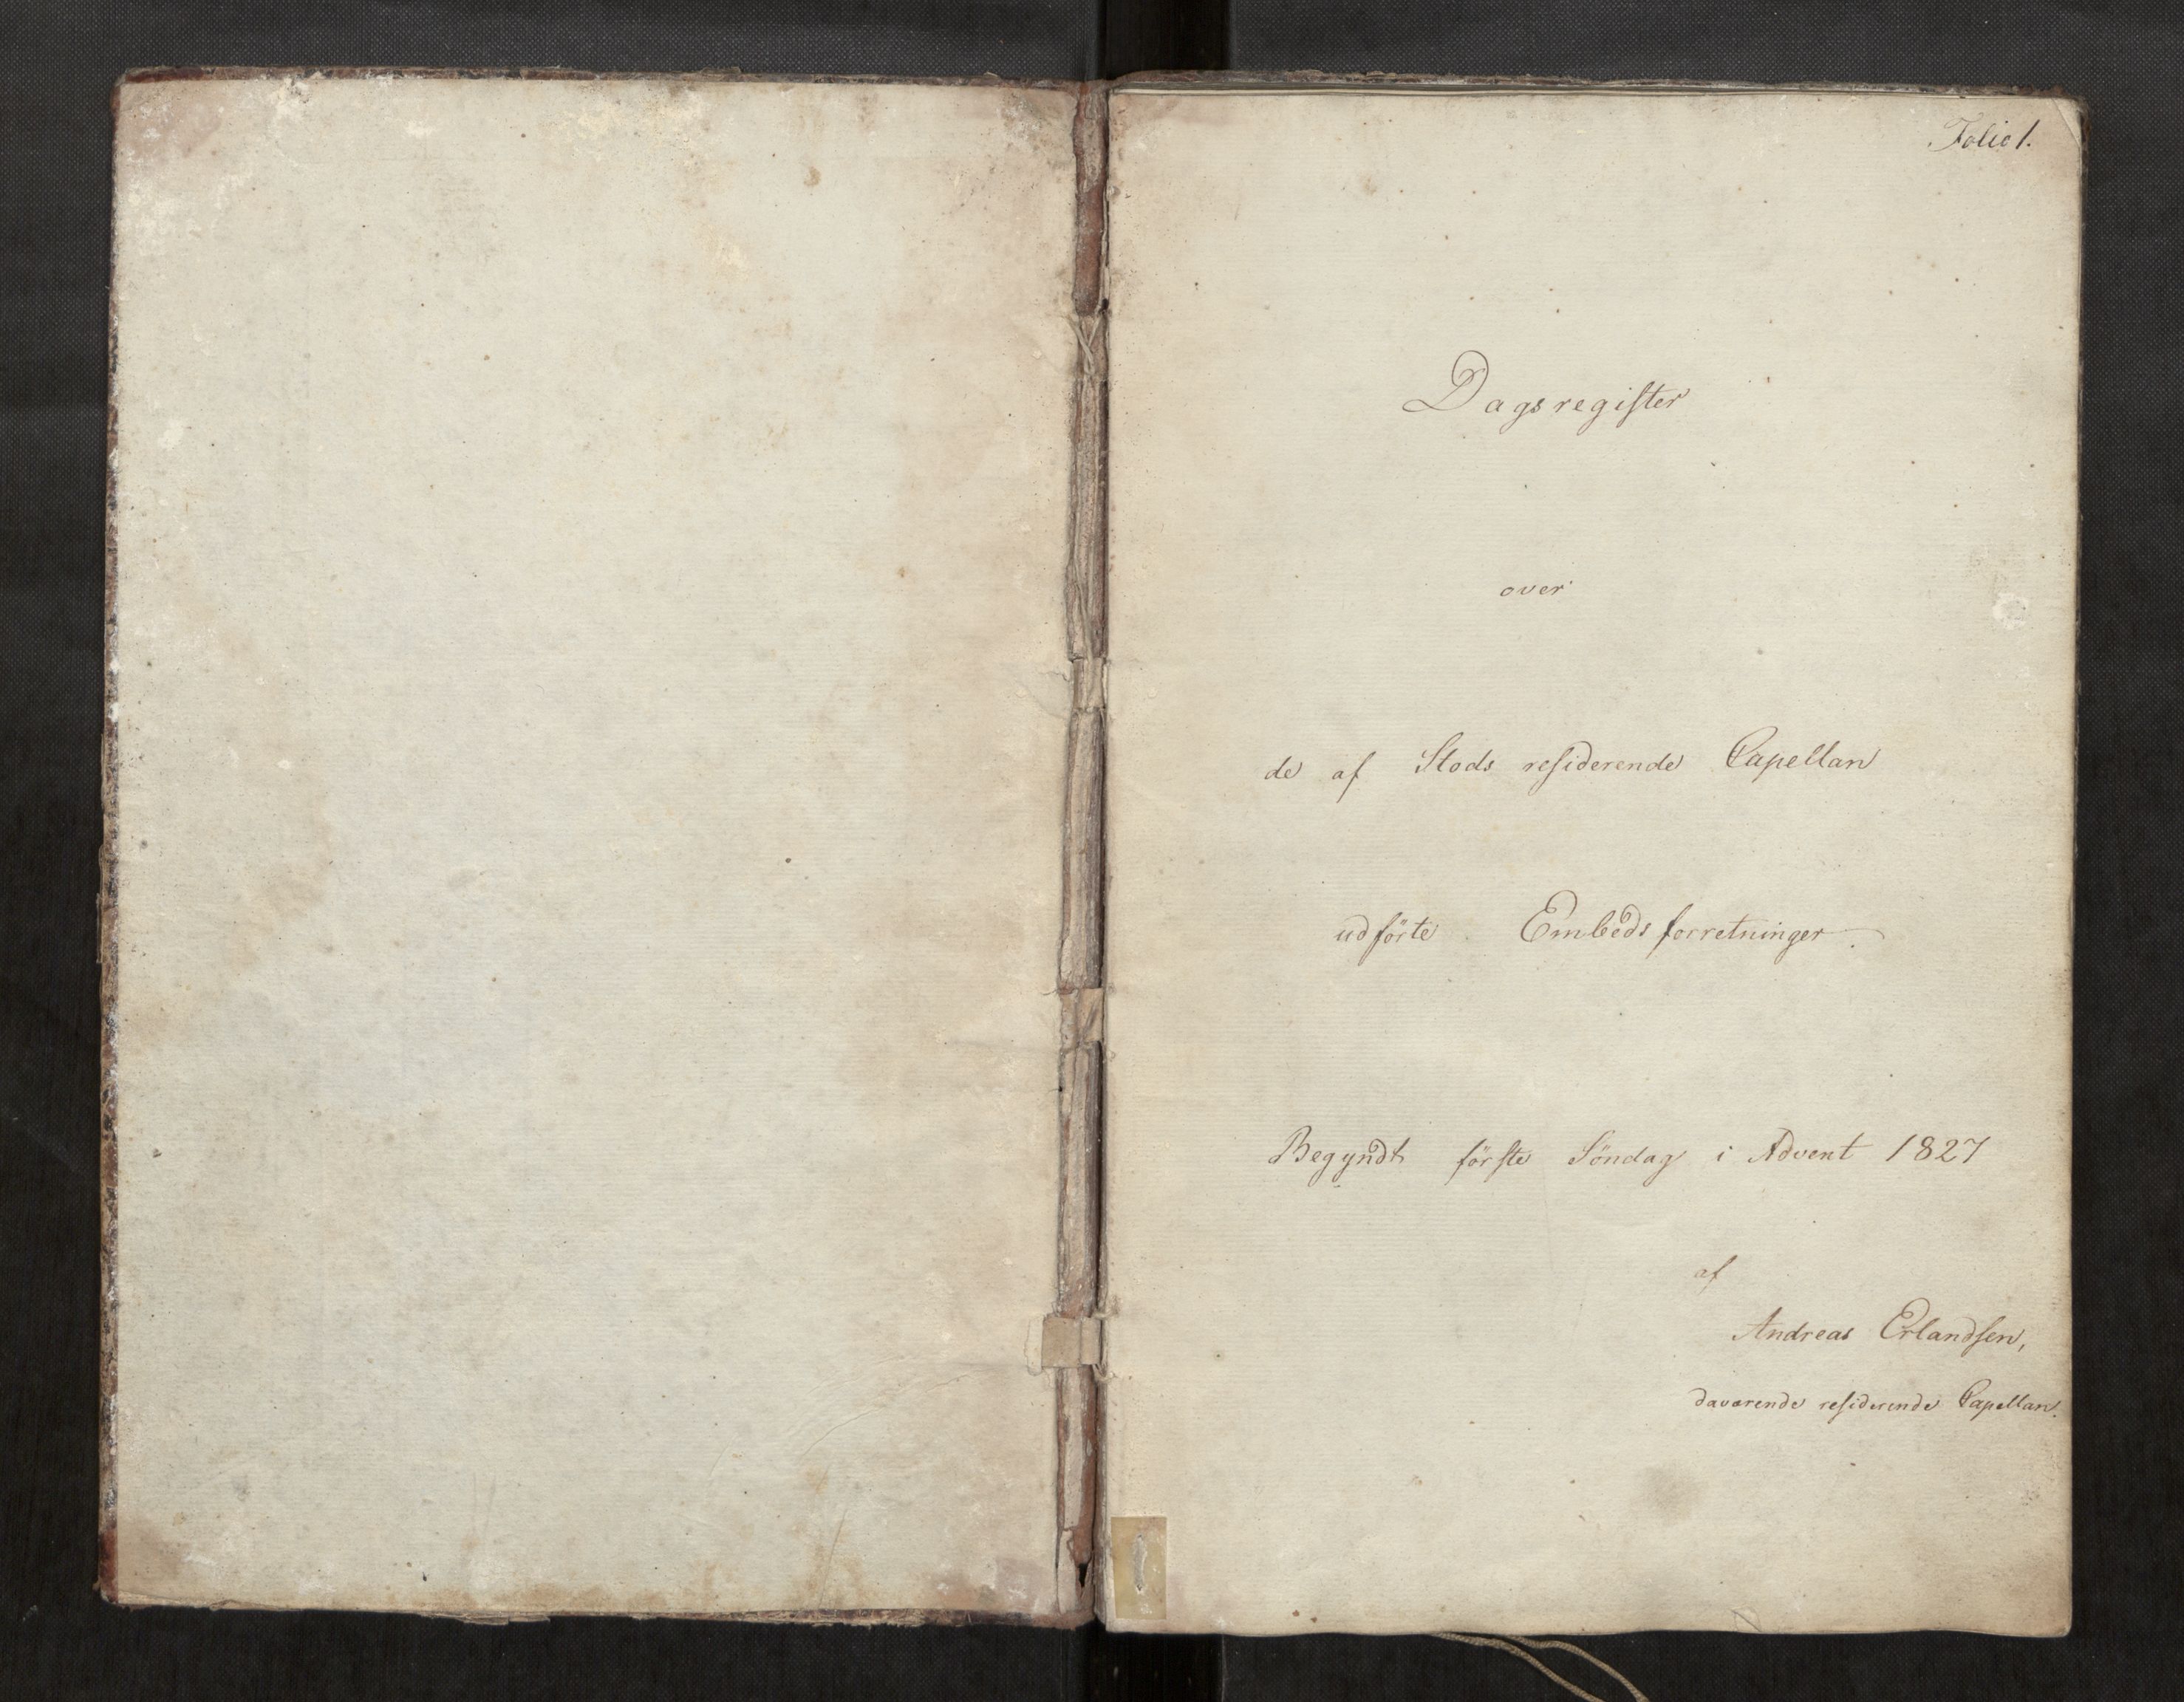 Folio 1.
Dagsregister
over
de af Stods residerende Capellan
udförte Embedsforretninger.
Begyndt förste Söndag i Advent 1827
af
Andreas Erlandsen,
daværende residerende Capellan.